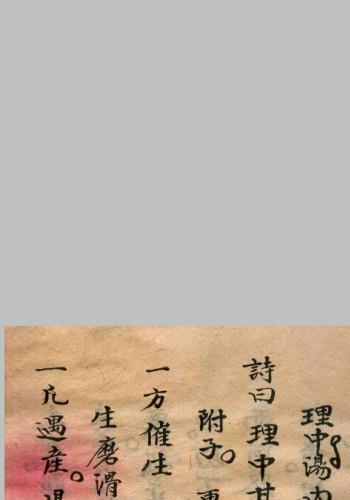 理中湯
詩曰理中甘
附子。
一方催生
生磨滑
一凡遇産。